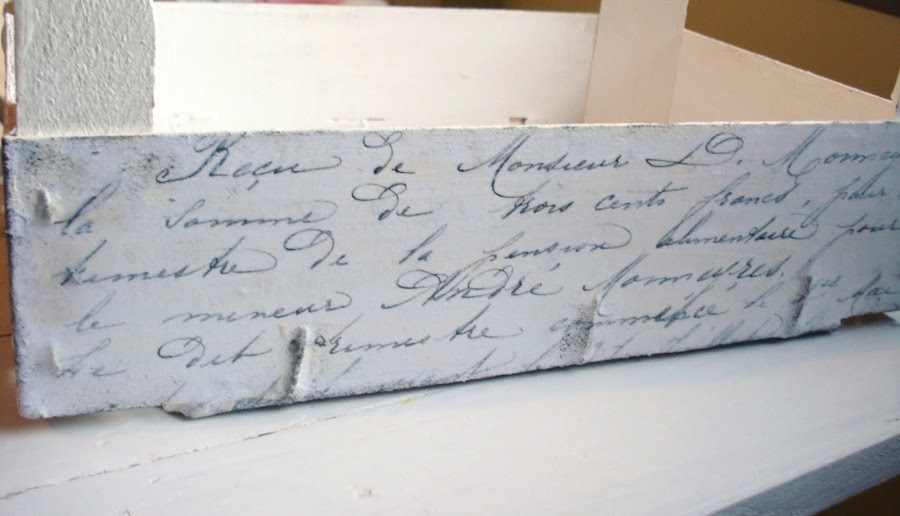 Reçu de Monsieur LD. Monney
la somme de trois cents francs, pour
trimestre De la pension alimentaire pour
le mineur André Monneyres.
Le Dit trimestre commence le 1er Mai